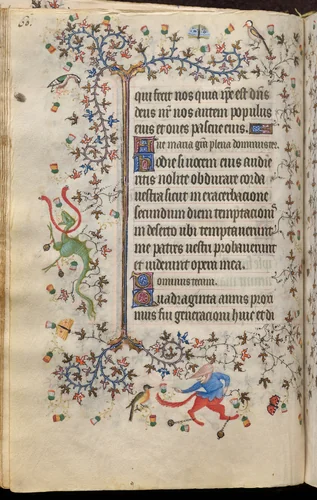 qui fecit nos quia ipse est dñs
deus nr nos autem populus
eius et oues pascue eius.
Aue maria grā plena dominus tec.
Hodie si uocem eius audie
ritis nolite obdurare corda
uestra sicut in exacerbacione
secundum diem temptacionis
in deserto ubi temptauerunt
me patres uestri probauerunt
et uiderunt opera mea.
Dominus tecum.
Quadraginta annis proxi
mus fui generacioni huic et di